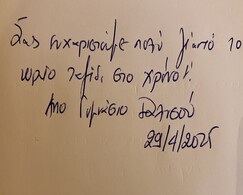 Σας ευχαριστούμε πολύ γι'αυτό το
ωραίο ταξίδι στο χρόνο!!
Απο Γυμνάσιο
29/4/2025